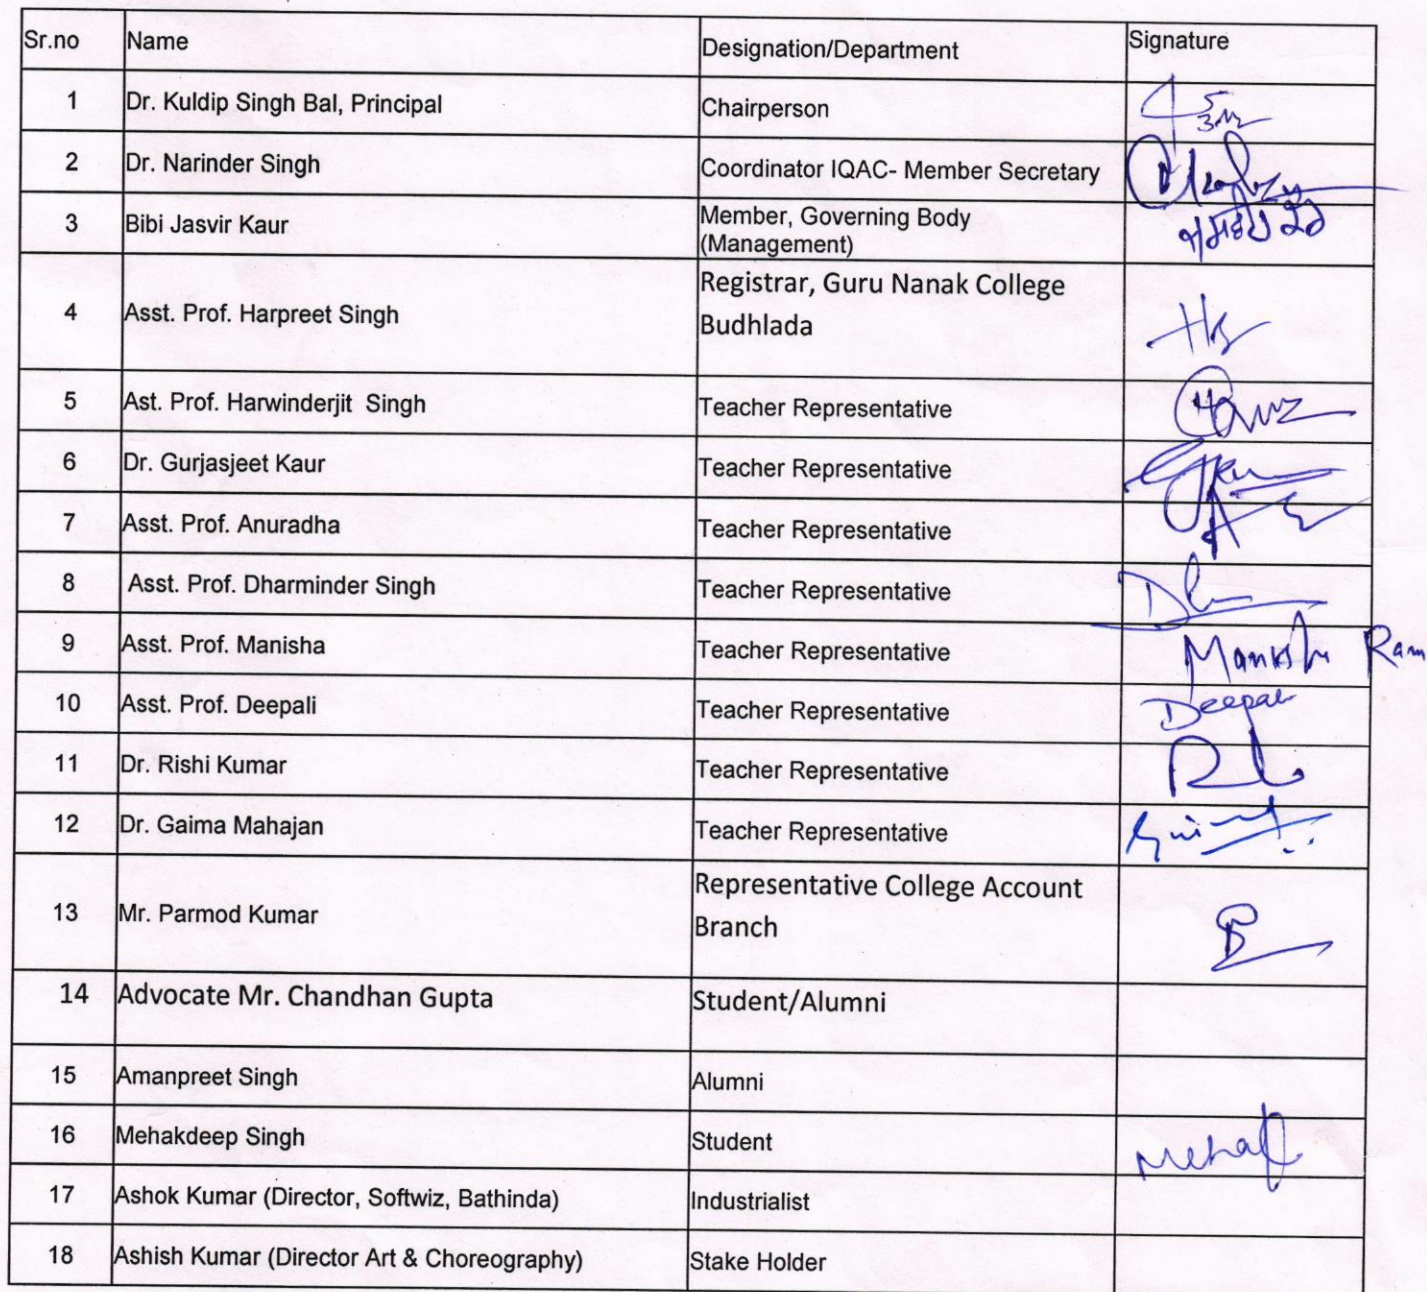 Sr.no Name Designation/Department Signature
1 Dr. Kuldip Singh Bal, Principal Chairperson
2 Dr. Narinder Singh Coordinator IQAC- Member Secretary
3 Bibi Jasvir Kaur Member, Governing Body
(Management)
4 Asst. Prof. Harpreet Singh Registrar, Guru Nanak College
Budhlada
5 Ast. Prof. Harwinderjit Singh Teacher Representative
6 Dr. Gurjasjeet Kaur Teacher Representative
7 Asst. Prof. Anuradha Teacher Representative
8 Asst. Prof. Dharminder Singh Teacher Representative
9 Asst. Prof. Manisha Teacher Representative Manisha Ram
10 Asst. Prof. Deepali Teacher Representative
11 Dr. Rishi Kumar Teacher Representative
12 Dr. Gaima Mahajan Teacher Representative
13 Mr. Parmod Kumar Representative College Account
Branch
14 Advocate Mr. Chandhan Gupta Student/Alumni
15 Amanpreet Singh Alumni
16 Mehakdeep Singh Student
17 Ashok Kumar (Director, Softwiz, Bathinda) Industrialist
18 Ashish Kumar (Director Art & Choreography) Stake Holder